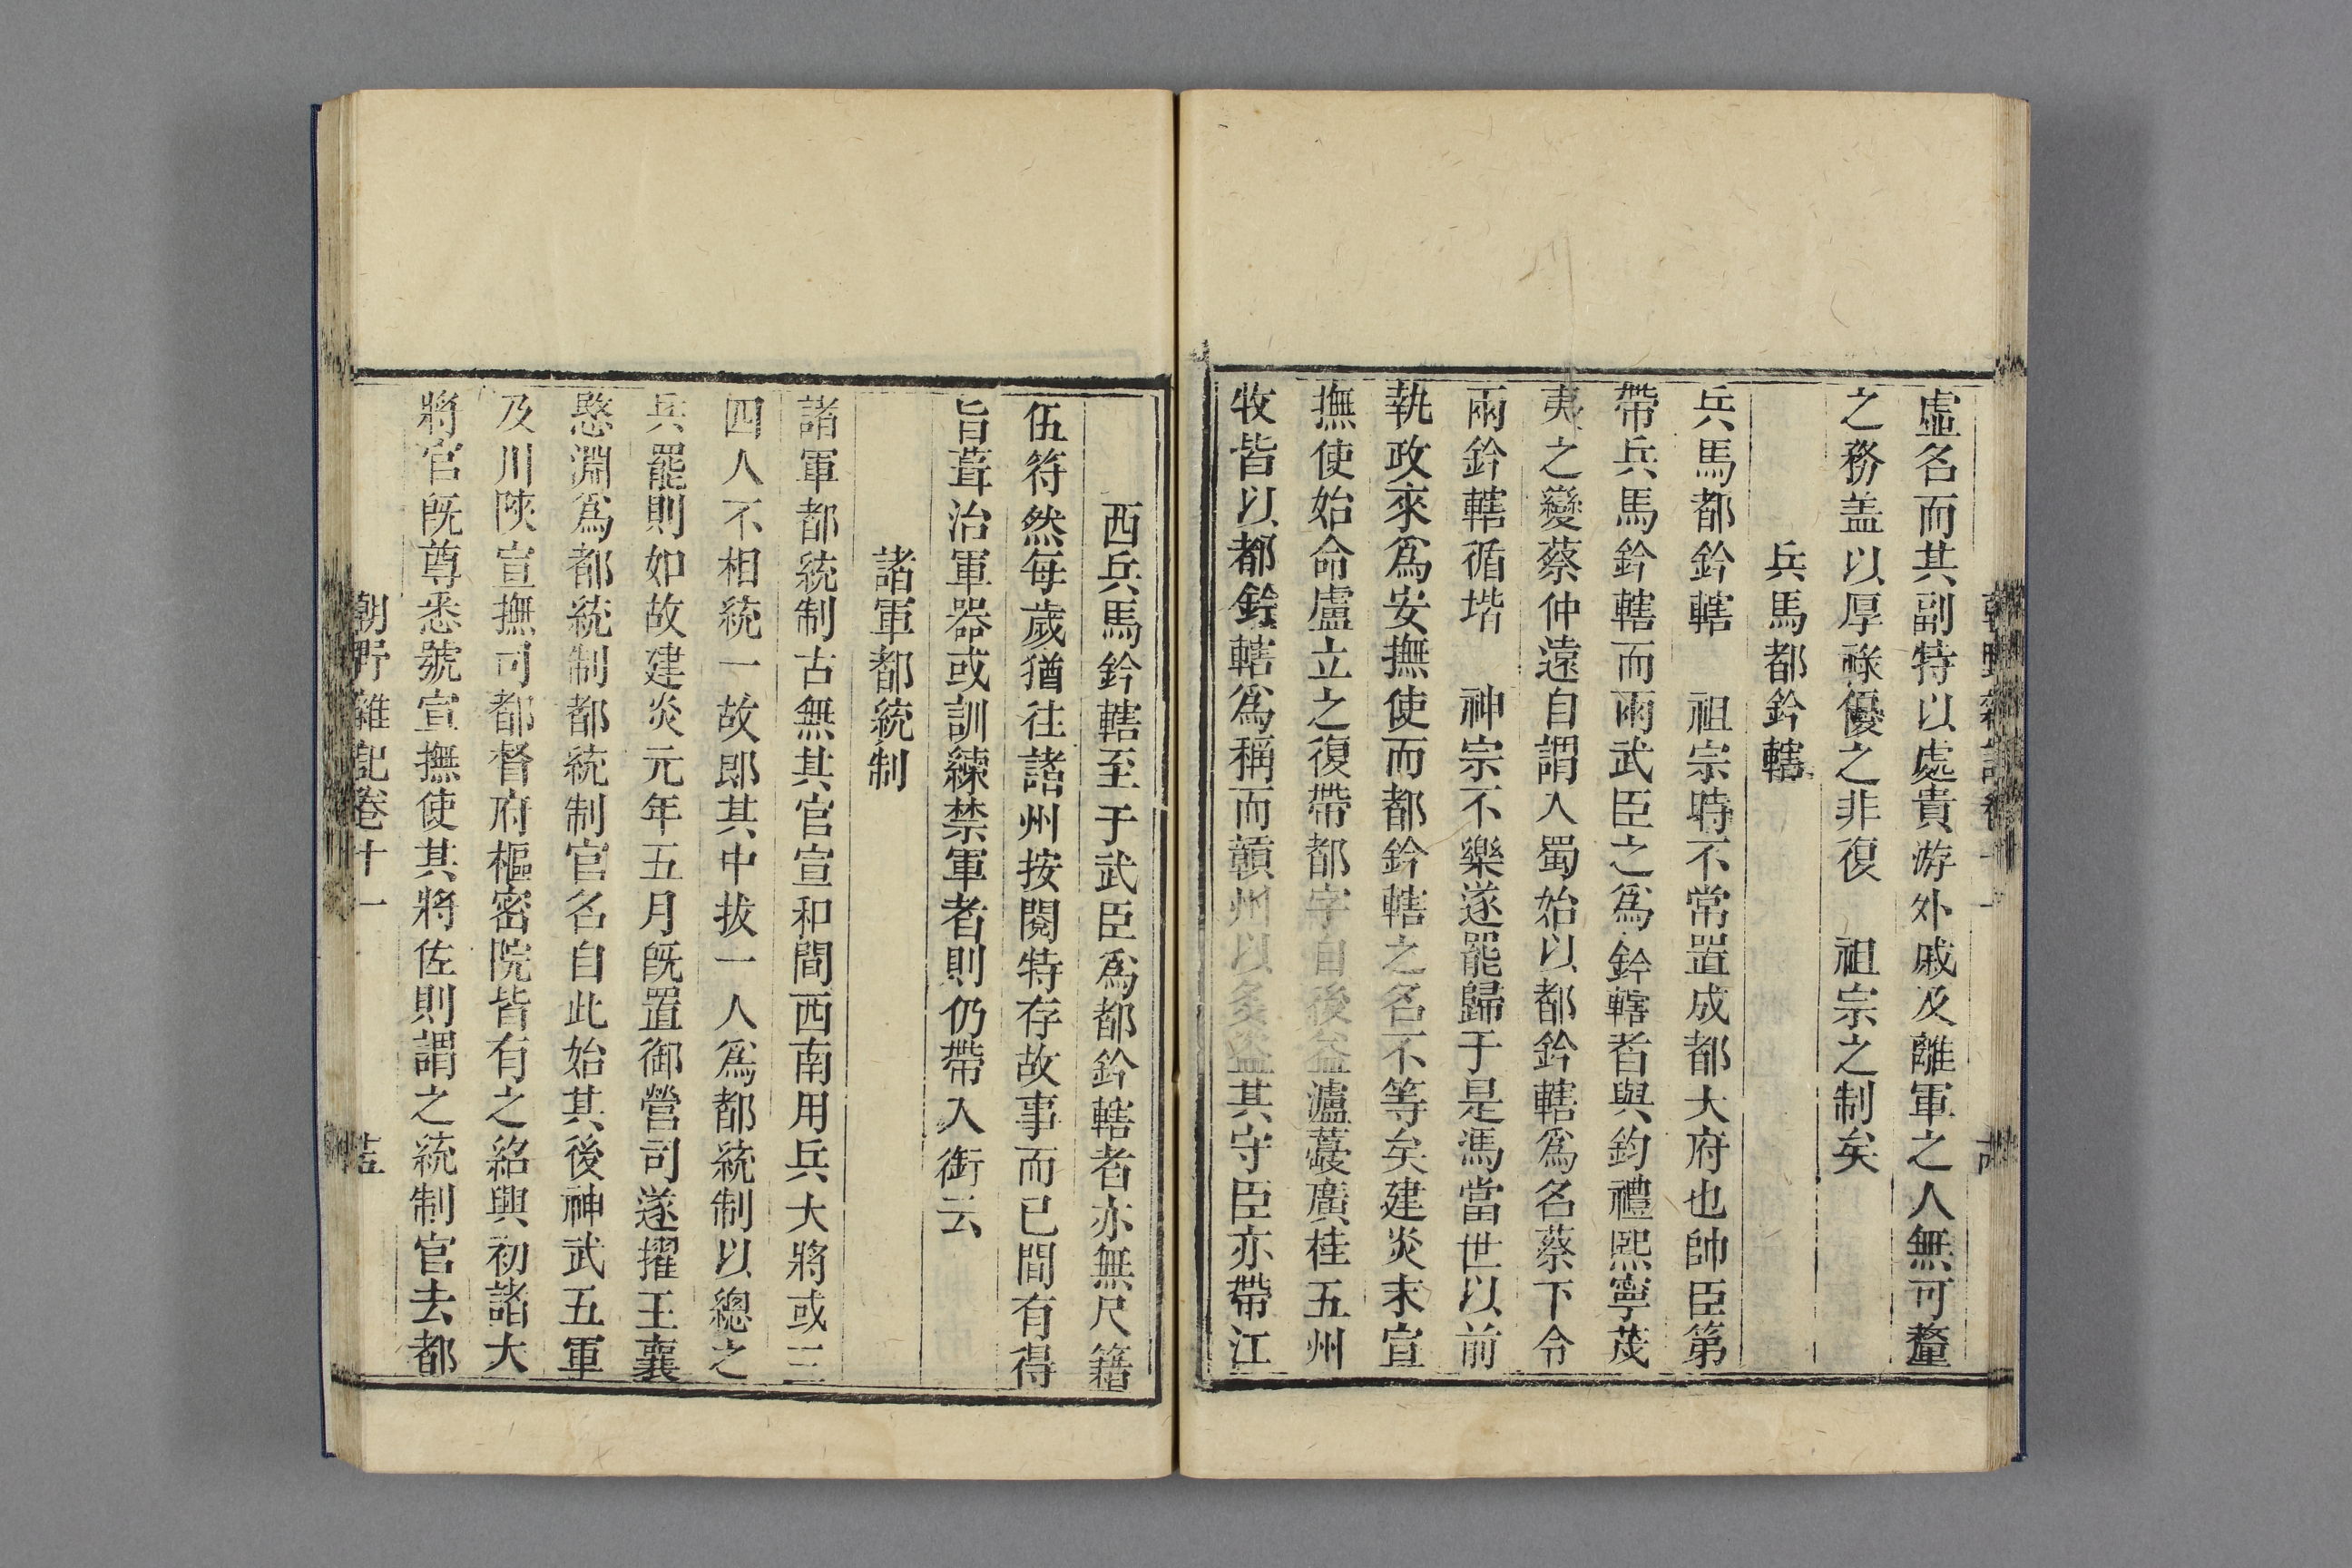 虛名而其副特以處貴游外戚及離軍之人無可釐
之務盖以厚祿優之非復　祖宗之制矣
兵馬都鈐轄
兵馬都鈐轄　祖宗時不常置成都大府也帥臣第
帶兵馬鈐轄而兩武臣之爲鈐轄者與鈞禮熙寧茂
夷之變蔡仲遠自謂入蜀始以都鈐轄爲名蔡下令
兩鈐轄循堦　神宗不樂遂罷歸于是馮當世以前
執政來爲安撫使而都鈐轄之名不等矣建炎末宣
撫使始命盧立之復帶都字自後益瀘蘷廣桂五州
牧皆以都鈐轄爲稱而贑州以多盜其守臣亦帶江
西兵馬鈐轄至于武臣爲都鈐轄者亦無尺籍
伍符然每歲猶往諸州按閱特存故事而已間有得
旨葺治軍器或訓練禁軍者則仍帶入銜云
諸軍都統制
諸軍都統制古無其官宣和間西南用兵大將或三
四人不相統一故郎其中拔一人爲都統制以總之
兵罷則如故建炎元年五月旣置御營司遂擢王襄
愍淵爲都統制都統制官名自此始其後神武五軍
及川陝宣撫司都督府樞密院皆有之紹興初諸大
將官旣尊悉號宣撫使其將佐則謂之統制官去都
朝野雜記卷十一